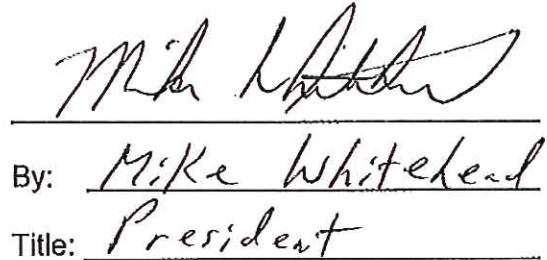 Mike Whitehead
By: Mike Whitehead
Title: President